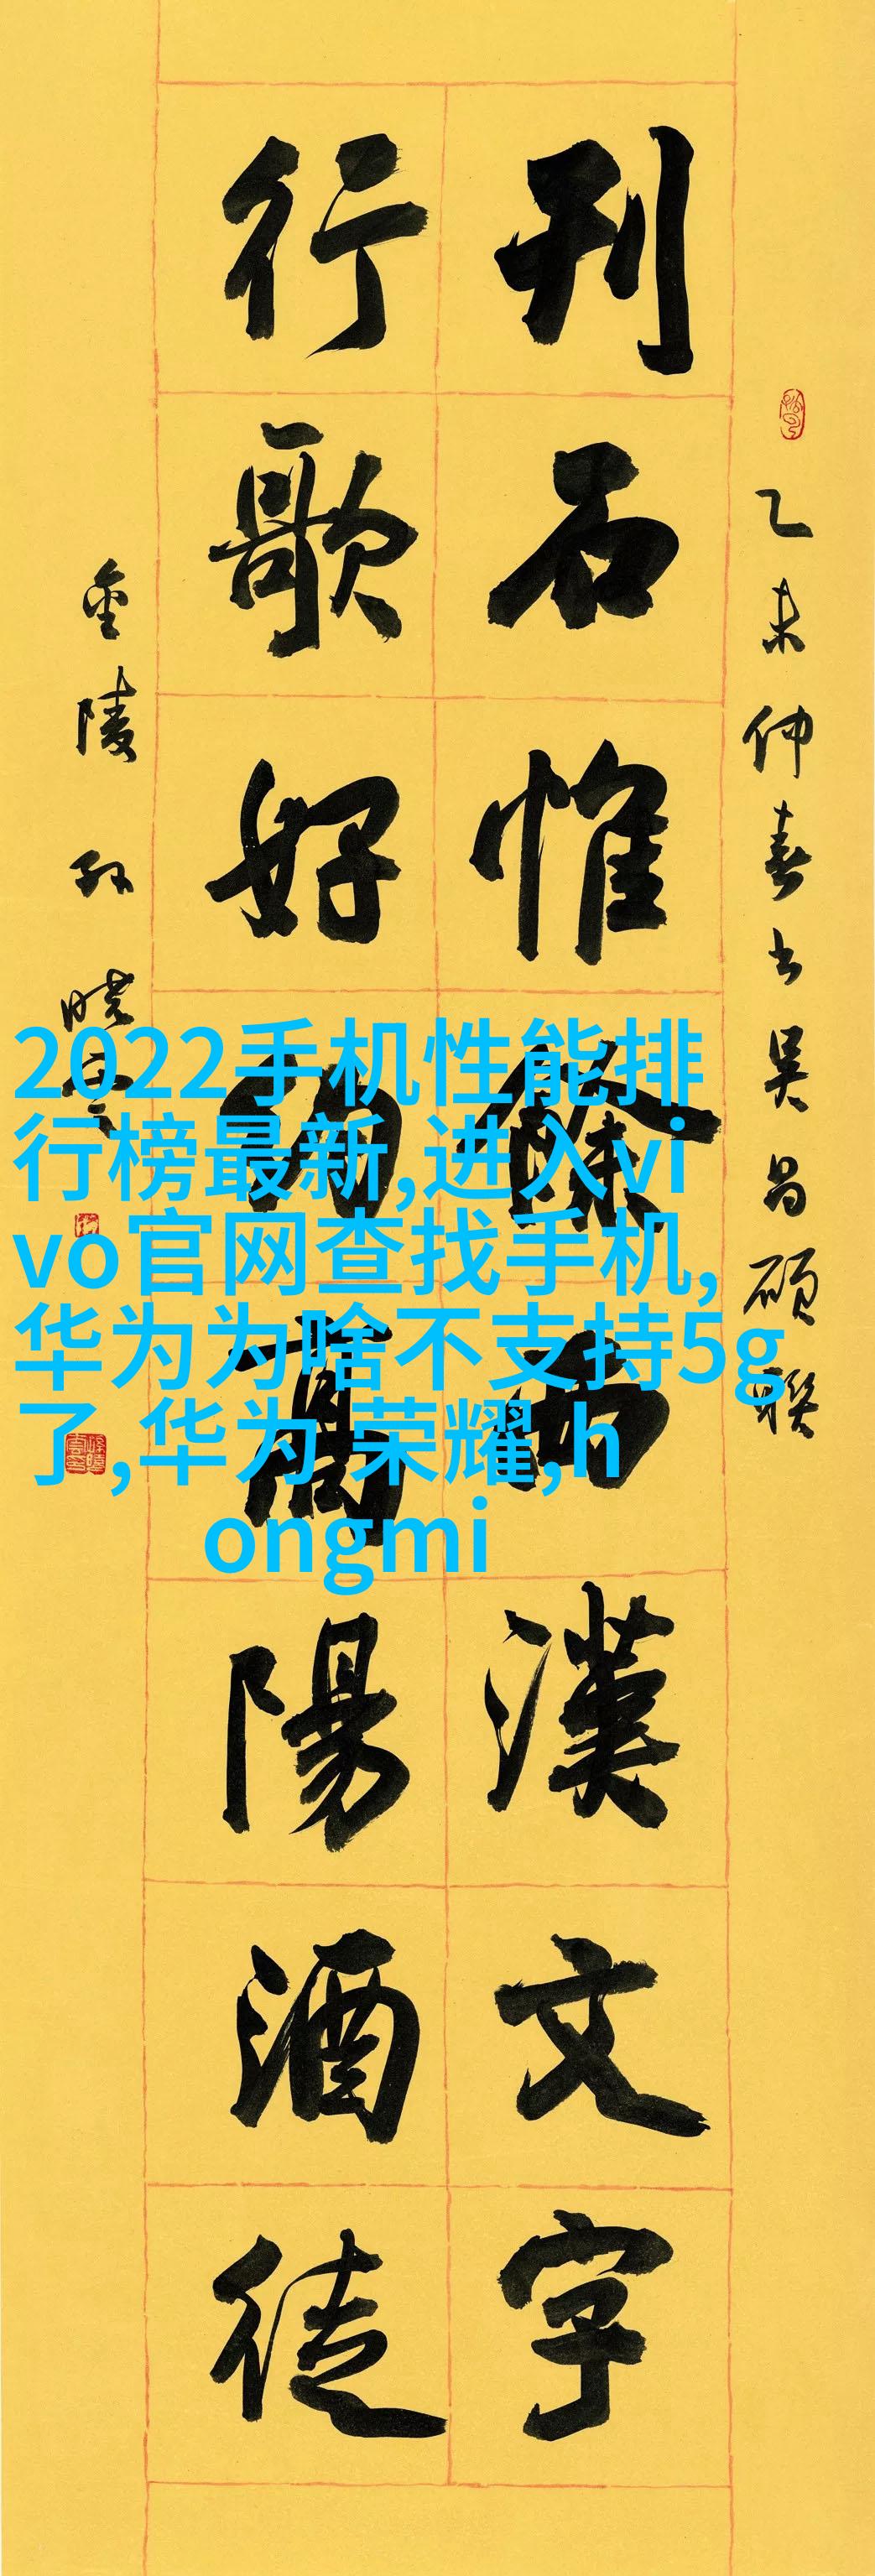 乙未仲春书吴昌碩聯
刊石惟餘西漢文字
行歌好約高陽酒徒
金陵孙晓云
2022手机性能排
行榜最新,进入vi
vo官网查找手机,
华为为啥不支持5g
了,华为 荣耀,h
ongmi